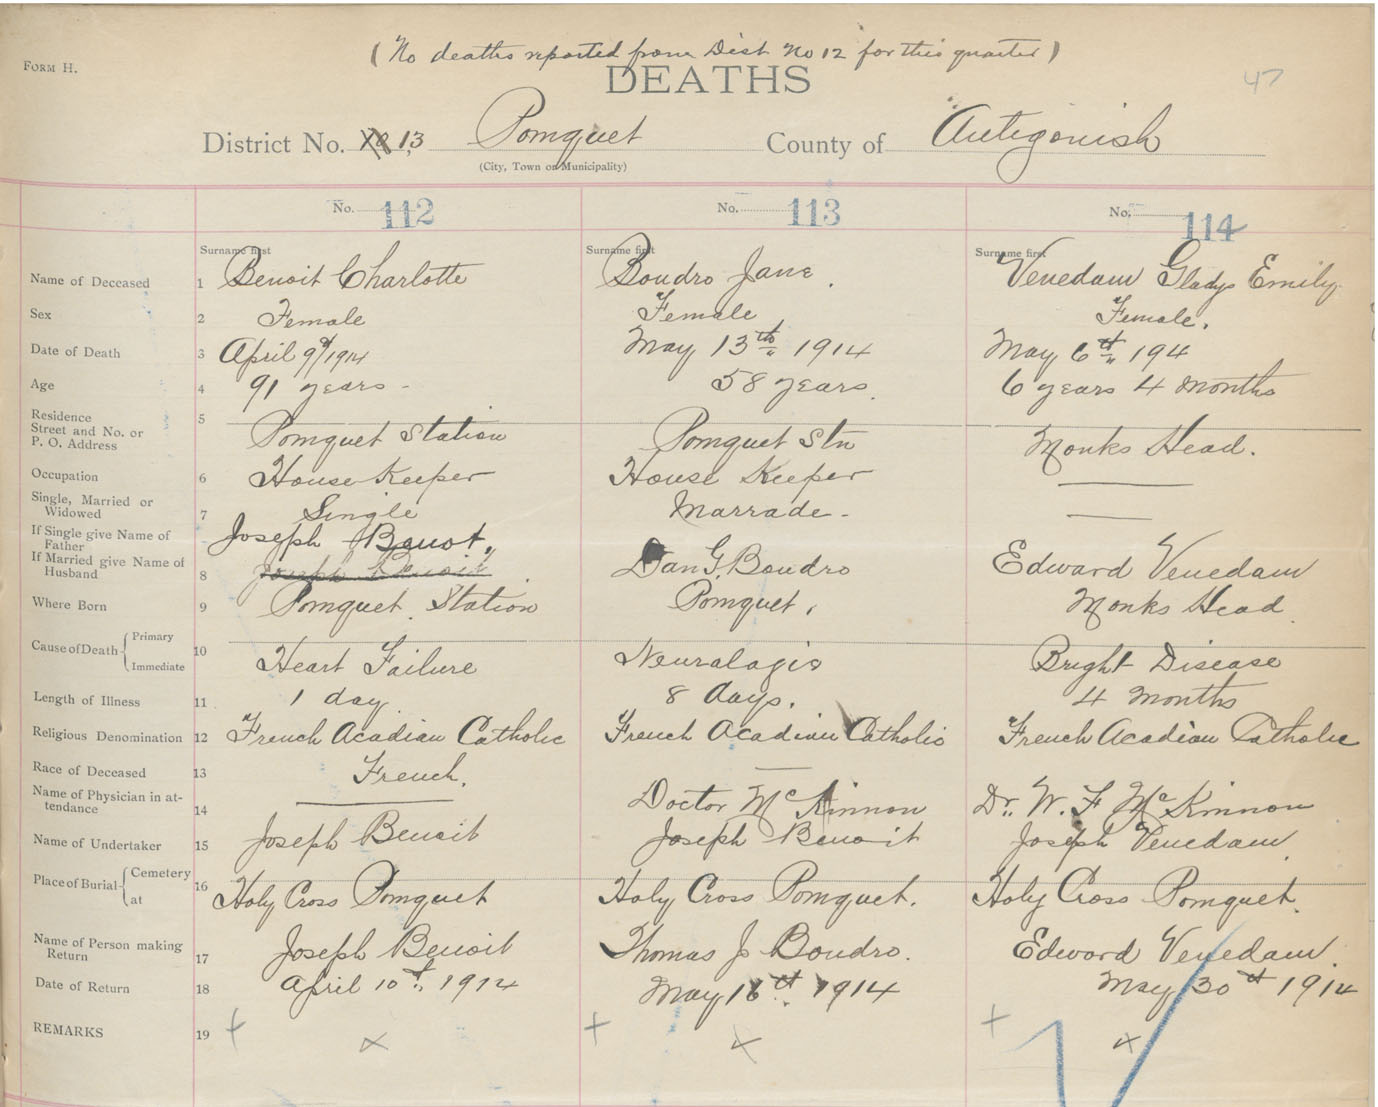 (No deaths reported from Dist No 12 for this quarter)
FORM H.
DEATHS
47
District No. 13 Pomquet County of Antigonish
(City, Town or Municipality)
No. 112 No. 113 No. 114
Surname first Surname first Surname first
Name of Deceased 1 Benoit Charlotte Boudro Jane. Venedam Gladys Emily
Sex 2 Female Female Female.
Date of Death 3 April 9th 1914 May 13th 1914 May 6th 194
Age 4 91 years - 58 years. 6 years 4 months
Residence
Street and No. or
P. O. Address 5 Pomquet Station Pomquet Stn Monks Head.
Occupation 6 House Keeper House Keeper
Single, Married or
Widowed 7 Single Marrade -
If Single give Name of
Father Joseph Benot.
If Married give Name of
Husband 8 Joseph Benoit Dan G. Boudro Edward Venedam
Where Born 9 Pomquet Station Pomquet. Monks Head
Cause of Death { Primary
Immediate 10 Heart Failure Neuralagis Bright Disease
Length of Illness 11 1 day 8 days. 4 months
Religious Denomination 12 French Acadian Catholic French Acadian Catholic French Acadian Catholic
Race of Deceased 13 French.
Name of Physician in at-
tendance 14 Doctor McKinnon Dr. W. F McKinnon
Name of Undertaker 15 Joseph Benoit Joseph Benoit Joseph Venedam
Place of Burial { Cemetery
at 16 Holy Cross Pomquet Holy Cross Pomquet. Holy Cross Pomquet.
Name of Person making
Return 17 Joseph Benoit Thomas J Boudro. Edward Venedam.
Date of Return 18 April 10th, 1914 May 16th 1914 May 30th 1914
REMARKS 19 + x + x + x